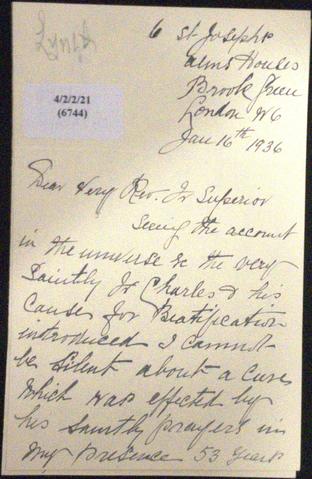 Lynch
4/2/2/21
(6744)
6 St Josephs
alms Houses
Brook Green
London W6
Jan 16th 1936
Dear Very Rev. Fr Superior
Seeing the account
in the universe & the very
Saintly Fr Charles & his
Cause for Beatification
introduced I cannot
be silent about a Cure
which was effected by
his saintly prayers in
my presence 53 years